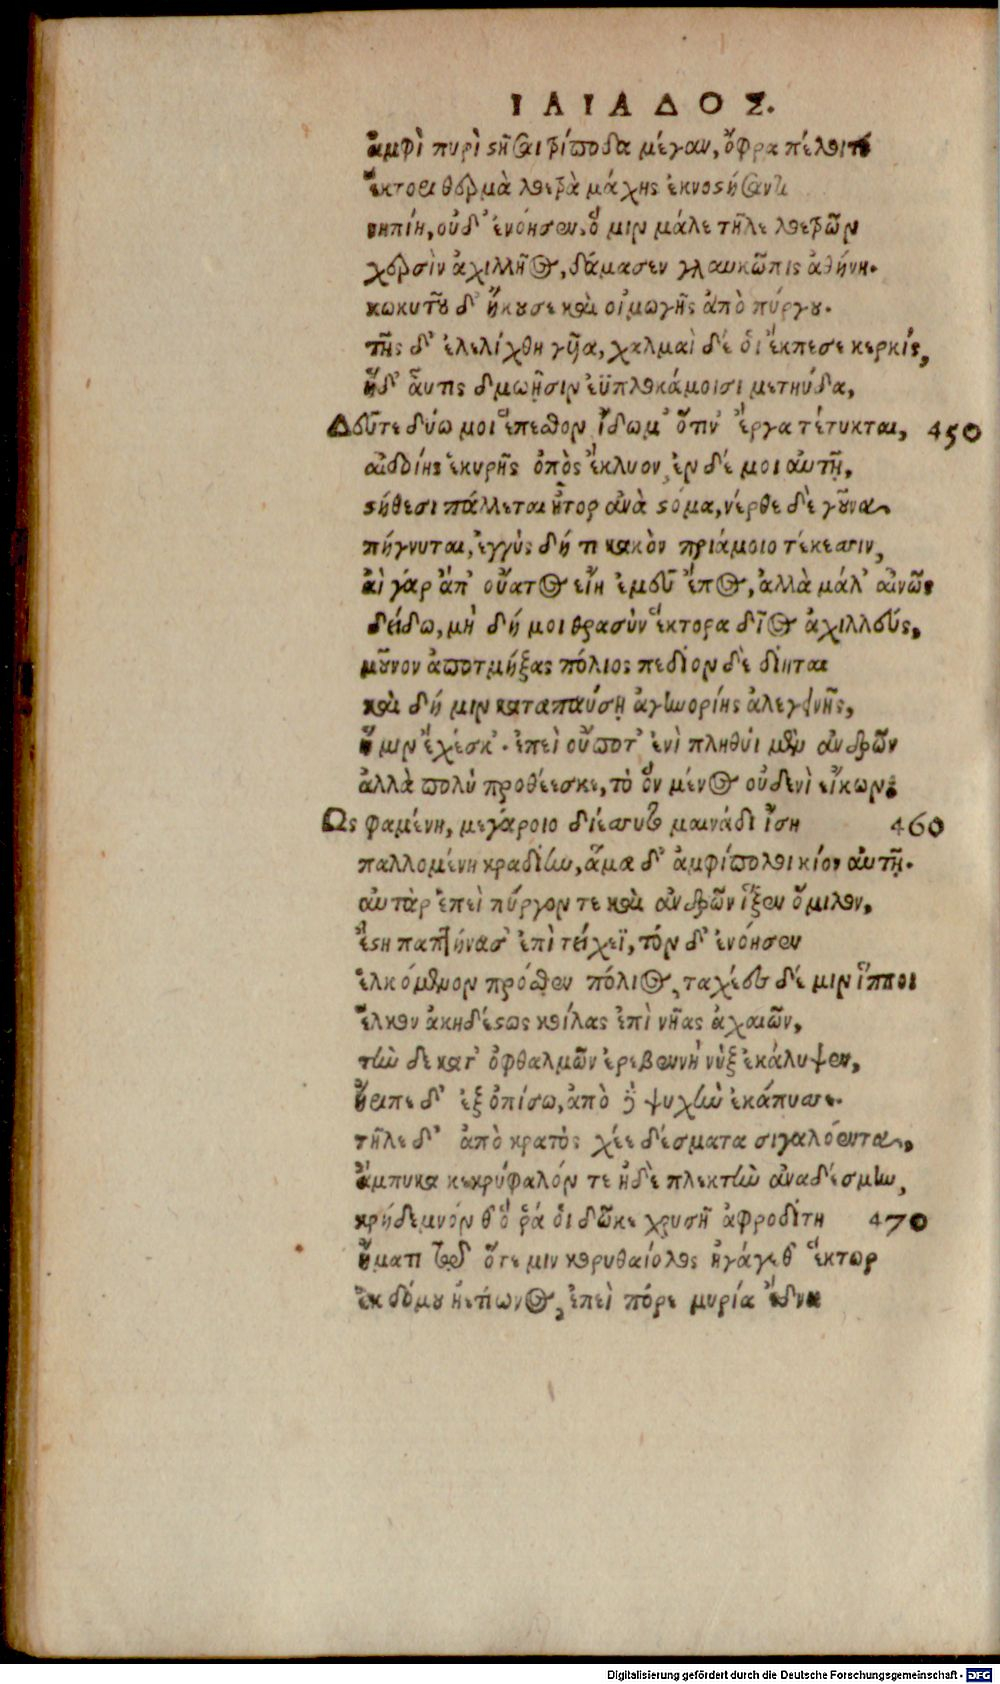 ΙΛΙΑΔΟΣ.
ἀμφὶ πυρὶ στῆσαι τρίποδα μέγαν, ὄφρα πέλοιτο
ἕκτορι θερμὰ λοετρὰ μάχης ἐκνοστήσαντι
νηπίη, οὐδ' ἐνόησεν, ὅ μιν μάλα τῆλε λοετρῶν
χερσὶν ἀχιλλῆος, δάμασεν γλαυκῶπις ἀθήνη.
κωκυτοῦ δ' ἤκουσε καὶ οἰμωγῆς ἀπὸ πύργου.
τῆς δ' ἐλελίχθη γυῖα, χαλμαὶ δέ ὁι ἔκπεσε κερκίς,
ἥδ' αὖτις δμωῇσιν ἐϋπλοκάμοισι μετηύδα,
Δεῦτε δύω μοι ἕπεσθον ἴδωμ' ὅτιν' ἔργα τέτυκται, 450
αἰδοίης ἑκυρῆς ὀπὸς ἔκλυον, ἐν δέ μοι αὐτῇ,
στήθεσι πάλλεται ἦτορ ἀνὰ στόμα, νέρθε δὲ γοῦνα
πήγνυται, ἐγγὺς δή τι κακὸν πριάμοιο τέκεσσιν,
αἲ γάρ ἀπ' οὔατος εἴη ἐμοῦ ἔπος, ἀλλὰ μάλ' αἰνῶς
δείδω, μὴ δή μοι θρασὺν ἕκτορα δῖος ἀχιλλεύς,
μοῦνον ἀποτμήξας πόλιος πεδίον δὲ δίηται
καὶ δή μιν καταπαύσῃ ἀγηνορίης ἀλεγεινῆς,
ἥ μιν ἔχεσκ'. ἐπεὶ οὔποτ' ἐνὶ πληθύϊ μένεν ἀνδρῶν
ἀλλὰ πολὺ προθέεσκε, τὸ ὃν μένος οὐδενὶ εἴκων.
Ως φαμένη, μεγάροιο διέσσυτο μαινάδι ἴση 460
παλλομένη κραδίην, ἅμα δ' ἀμφίπολοι κίον αὐτῇ.
αὐτὰρ ἐπεὶ πύργον τε καὶ ἀνδρῶν ἷξεν ὅμιλον,
ἔστη παπτήνασ' ἐπὶ τείχεϊ, τὸν δ' ἐνόησεν
ἑλκόμενον πρόσθεν πόλιος, ταχέες δέ μιν ἵπποι
ἕλκον ἀκηδέστως κοίλας ἐπὶ νῆας ἀχαιῶν,
τὴν δε κατ' ὀφθαλμῶν ἐρεβεννὴ νὺξ ἐκάλυψεν,
ἤριπε δ' ἐξοπίσω, ἀπὸ δὲ ψυχὴν ἐκάπυσσε.
τῆλε δ' ἀπὸ κρατὸς χέε δέσματα σιγαλόεντα,
ἄμπυκα κεκρύφαλόν τε ἠδὲ πλεκτὴν ἀναδέσμην,
κρήδεμνόν θ' ὅ ῥά ὁι δῶκε χρυσῆ ἀφροδίτη 470
ἤματι τῷδ' ὅτε μιν κορυθαίολος ἠγάγεθ' ἕκτωρ
ἐκ δόμου ἠετίωνος, ἐπεὶ πόρε μυρία ἕδνα
Digitalisierung gefördert durch die Deutsche Forschungsgemeinschaft - DFG